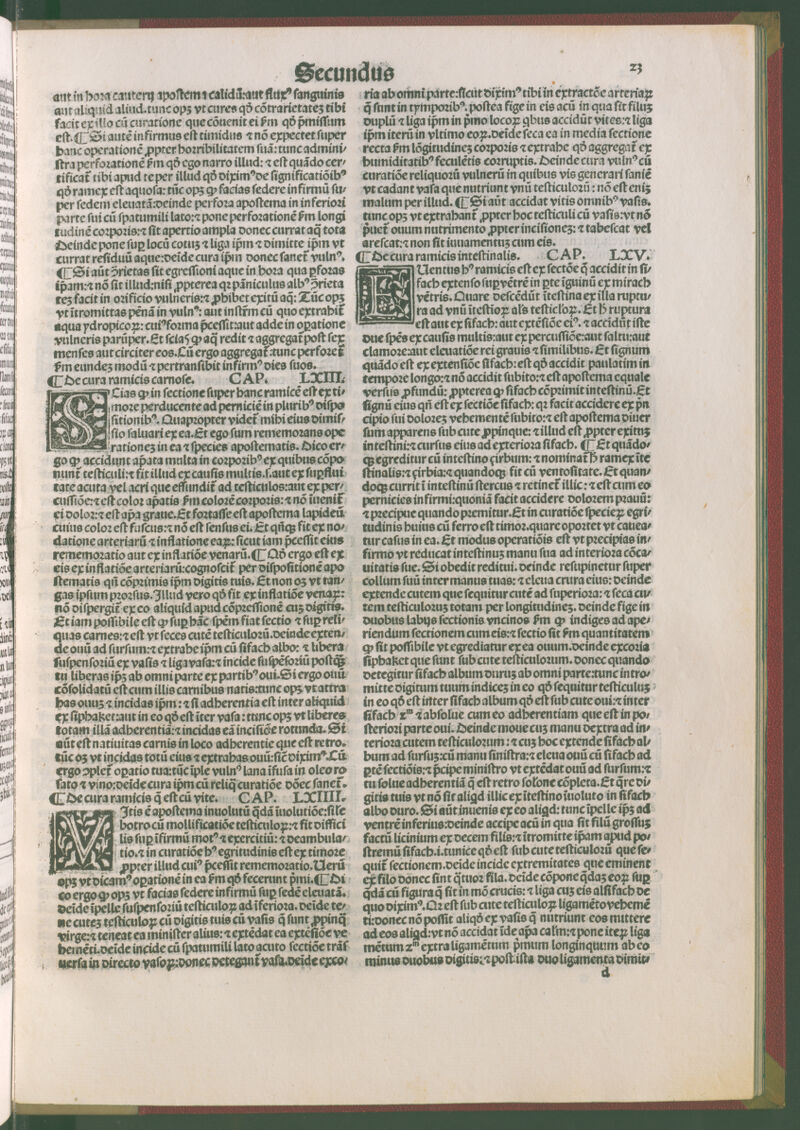 Secundus
23
aut in hora cauterij apostema calidū: aut fluxꝰ sanguinis
aut aliquid aliud. tunc opꝫ vt cures qď cōtrarietateꝫ tibi
facit ex illo cū curatione que cōuenit ei ẜm qď p̄missum
est. ¶ Si autē infirmus est timidus ⁊ nō expectet super
hanc operationē ꝓpter horribilitatem suā: tunc admini⸗
stra perforationē ẜm qď ego narro illud: ⁊ est quādo cer⸗
tificat̄ tibi apud te per illud qď diximꝰ de significatiōibꝰ
qď ramex est aquosa: tūc opꝫ ꝙ facias sedere infirmū su⸗
per sedem eleuatā: deinde perfora apostema in inferiori
parte sui cū spatumili lato: ⁊ pone perforationē ẜm longi
tudinē corporis: ⁊ sit apertio ampla donec currat aq̄ tota
Deinde pone sup̱ locū cotuꝫ ⁊ liga ip̄m ⁊ dimitte ip̄m vt
currat residuū aque: deide cura ip̄m donec sanet̄ vulnꝰ.
¶ Si aūt ꝯ̄rietas sit egressioni aque in hora qua ꝑforas
ip̄am: ⁊ nō sit illud: nisi ꝓpterea qꝛ pāniculus albꝰ ꝯ̄rieta
teꝫ facit in orificio vulneris: ⁊ ꝓhibet exitū aq̄: Tūc opꝫ
vt ītromittas pēnā in vulnꝰ: aut instr̄m cū quo extrahit̄
aqua ydropicoꝝ: cuiꝰ forma p̄cessit: aut adde in oꝑatione
vulneris parūper. Et scias ꝙ aq̄ redit ⁊ aggregat̄ post sex
menses aut circiter eos. Cū ergo aggregat̄: tunc perforet̄
ẜm eundeꝫ modū ⁊ pertransibit infirmꝰ dies suos.
¶ De cura ramicis carnose. CAP. LXIII.
SCias ꝙ in sectione super hanc ramicē est ex ti⸗
more perducente ad perniciē in pluribꝰ dispo
sitionibꝰ. Quapropter videt̄ mihi eius dimis⸗
sio saluari ex ea. Et ego sum rememorans ope
rationeꝫ in ea ⁊ species apostematis. Dico er⸗
go ꝙ accidunt ap̄ata multa in corporibꝰ ex quibus cōpo
nunt̄ testiculi: ⁊ fit illud ex causis multis. s. aut ex suꝑflui
tate acuta vel acri que effundit̄ ad testiculos: aut ex per⸗
cussiōe: ⁊ est color ap̄atis ẜm colorē corporis: ⁊ nō īuenit̄
ei dolor: ⁊ est ap̄a graue. Et fortasse est apostema lapideū
cuius color est fuscus: ⁊ nō est sensus ei. Et qn̄qꝫ fit ex no⸗
datione arteriarū ⁊ inflatione eaꝝ: sicut iam p̄cessit eius
rememoratio aut ex inflatiōe venarū. ¶ Qď ergo est ex
eis ex inflatiōe arteriarū: cognoscit̄ per dispositionē apo
stematis qn̄ cōprimis ip̄m digitis tuis. Et non oꝫ vt tan⸗
gas ipsum prorsus. Illud vero qď fit ex inflatiōe venaꝝ:
nō dispergit̄ ex eo aliquid apud cōpressionē cuꝫ digitis.
Et iam possibile est ꝙ sup̱ hāc spēm fiat sectio ⁊ sup̱ reli⸗
quas carnes: ⁊ est vt seces cutē testiculoꝝ. deinde exten⸗
de ouū ad sursum: ⁊ extrahe ip̄m cū sifach albo: ⁊ libera
suspensoriū ex vasis ⁊ liga vasa: ⁊ incide suspēsoriū postqꝫ
tu liberas ip̄ꝫ ab omni parte ex partibꝰ oui. Si ergo ouū
cōsolidatū est cum illis carnibus natis: tunc opꝫ vt attra
has ouuꝫ ⁊ incidas ip̄m: ⁊ si adherentia est inter aliquid
ex siphaket: aut in eo qď est īter vasa: tunc opꝫ vt liberes
totam illā adherentiā: ⁊ incidas eā incisiōe rotunda. Si
aūt est natiuitas carnis in loco adherentie que est retro.
tūc oꝫ vt incidas totū eius ⁊ extrahas ouū: sic̄ diximꝰ. Cū
ergo ꝯplet̄ oꝑatio tua: tūc īple vulnꝰ lana ifusa in oleo ro
sato ⁊ vino: deide cura ip̄m cū reliq̄ curatiōe dōec sanet̄.
¶ De cura ramicis q̄ est cū vite. CAP. LXIIII.
VItis ē apostema inuolutū q̄dā īuolutiōe: sil̄e
botro cū mollificatiōe testiculoꝝ: ⁊ fit diffici
lis sup̱ īfirmū motꝰ ⁊ exercitiū: ⁊ deambula⸗
tio. ⁊ in curatiōe hꝰ egritudinis est ex timore
ꝓpter illud cuiꝰ p̄cessit rememoratio. Uerū
opꝫ vt dicamꝰ oꝑationē in ea ẜm qď fecerunt p̄mi. ¶ Di
co ergo ꝙ opꝫ vt facias sedere infirmū sup̱ sedē eleuatā.
deīde īpelle suspensoriū testiculoꝝ ad īferiora. deide te⸗
ne cuteꝫ testiculoꝝ cū digitis tuis cū vasis q̄ sunt ꝓpinq̄
virge: ⁊ teneat ea minister alius: ⁊ extēdat ea extēsiōe ve
hemēti. deīde incide cū spatumili lato acuto sectiōe trās
uersa in directo vasoꝝ: donec detegant̄ vasa. deīde exco⸗
ria ab omni parte: sicut diximꝰ tibi in extractōe arteriaꝝ
q̄ sunt in tymporibꝰ. postea fige in eis acū in qua sit filuꝫ
duplū ⁊ liga ip̄m in p̄mo locoꝝ qbus accidūt vites: ⁊ liga
ip̄m iterū in vltimo eoꝝ. deīde seca ea in media sectione
recta ẜm lōgitudineꝫ corporis ⁊ extrahe qď aggregat̄ ex
humiditatibꝰ feculētis corruptis. Deinde cura vulnꝰ cū
curatiōe reliquorū vulnerū in quibus vis generari saniē
vt cadant vasa que nutriunt vnū testiculorū: nō est eniꝫ
malum per illud. ¶ Si aūt accidat vitis omnibꝰ vasis.
tunc opꝫ vt extrahant̄ ꝓpter hoc testiculi cū vasis: vt nō
p̄uet̄ ouum nutrimento ꝓpter incisioneꝫ: ⁊ tabescat vel
arescat: ⁊ non sit iuuamentuꝫ cum eis.
¶ De cura ramicis intestinalis. CAP. LXV.
EUentus hꝰ ramicis est ex sectōe q̄ accidit in si⸗
fach extenso sup̱ vētrē in ꝑte īguinū ex mirach
vētris. Quare descēdūt ītestina ex illa ruptu⸗
ra ad vnū ītestioꝝ al's testicl'oꝝ. Et h̄ ruptura
est aut ex sifach: aut extēsiōe eiꝰ. ⁊ accidūt iste
due spēs ex causis multis: aut ex percussiōe: aut saltu: aut
clamore: aut eleuatiōe rei grauis ⁊ similibus. Et signum
quādo est ex extēsiōe sifach: est qď accidit paulatim in
tempore longo: ⁊ nō accidit subito: ⁊ est apostema equale
versus ꝓfundū: ꝓpterea ꝙ sifach cōprimit intestinū. Et
signū eius qn̄ est ex sectiōe sifach: qꝛ facit accidere ex p̄n
cipio sui doloreꝫ vehementē subito: ⁊ est apostema diuer
sum apparens sub cute ꝓpinque: ⁊ illud est ꝓpter exituꝫ
intestini: ⁊ cursus eius ad exteriora sifach. ¶ Et quādo⸗
qꝫ egreditur cū intestino çirbum: ⁊ nominat̄ h̄ ramex īte
stinalis: ⁊ çirbia: ⁊ quandoqꝫ fit cū ventositate. Et quan⸗
doqꝫ currit̄ ī intestinū stercus ⁊ retinet̄ illic: ⁊ est cum eo
pernicies infirmi: quoniā facit accidere dolorem prauū:
⁊ precipue quando premitur. Et in curatiōe specieꝝ egri⸗
tudinis huius cū ferro est timor. quare oportet vt cauea⸗
tur casus in ea. Et modus operatiōis est vt precipias in⸗
firmo vt reducat intestinuꝫ manu sua ad interiora cōca⸗
uitatis sue. Si obedit reditui. deinde resupinetur super
collum suū inter manus tuas: ⁊ eleua crura eius: deinde
extende cutem que sequitur cutē ad superiora: ⁊ seca cu⸗
tem testiculoruꝫ totam per longitudineꝫ. deinde fige in
duobus labijs sectionis vncinos ẜm ꝙ indiges ad ape⸗
riendum sectionem cum eis: ⁊ sectio sit ẜm quantitatem
ꝙ sit possibile vt egrediatur ex ea ouum. deinde excoria
siphaket que sunt sub cute testiculorum. donec quando
detegitur sifach album durus ab omni parte: tunc intro⸗
mitte digitum tuum indiceꝫ in eo qď sequitur testiculuꝫ
in eo qď est inter sifach album qď est sub cute oui: ⁊ inter
sifach ꝛᵐ ⁊ absolue cum eo adherentiam que est in po⸗
steriori parte oui. Deinde moue cuꝫ manu dextra ad in⸗
teriora cutem testiculorum: ⁊ cuꝫ hoc extende sifach al⸗
bum ad sursuꝫ: cū manu sinistra: ⁊ eleua ouū cū sifach ad
ꝑtē sectiōis: ⁊ p̄cipe ministro vt extēdat ouū ad sursum: ⁊
tu solue adherentiā q̄ est retro solutōe cōpleta. Et q̄re di⸗
gitis tuis vt nō sit aliqd illic ex ītestino inuoluto in sifach
albo duro. Si aūt inuenis ex eo aliqd: tunc īpelle ip̄ꝫ ad
ventrē inferius: deinde accipe acū in qua sit filū grossuꝫ
factū licinium ex decem filis: ⁊ ītromitte ip̄am apud po⸗
stremū sifach. i. tunice qď est sub cute testiculorū que se⸗
quit̄ sectionem. deide incide extremitates que eminent
ex filo donec sint q̄tuor fila. deide cōpone q̄daꝫ eoꝝ sup̱
q̄dā cū figura q̄ sit in mō crucis: ⁊ liga cuꝫ eis alsifach de
quo diximꝰ. Qꝛ est sub cute testiculoꝝ ligamēto vehemē
ti: donec nō possit aliqď ex vasis q̄ nutriunt eos mittere
ad eos aliqd: vt nō accidat īde ap̄a cal'm: ⁊ pone iteꝝ liga
mētum ꝛᵐ extra ligamētum p̄mum longinquum ab eo
minus duobus digitis: ⁊ post ista duo ligamenta dimit⸗
d